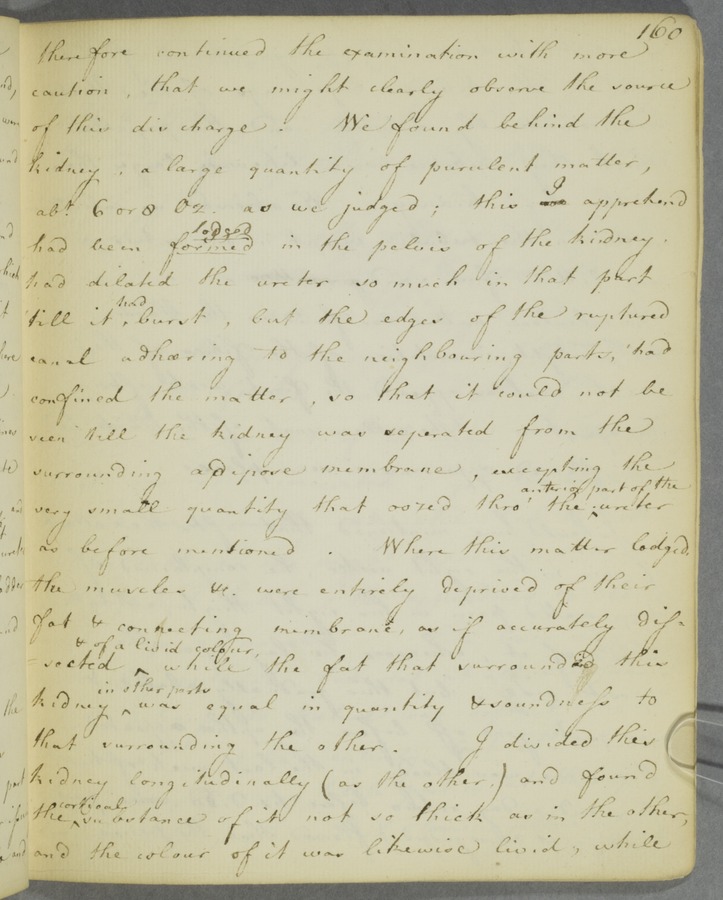 160
therefore continued the examination with more
caution, that we might clearly observe the source
of this discharge. We found behind the
kidney, a large quantity of purulent matter,
abt. 6 or 8 Oz. as we judged; this I apprehend
lodged
had been formed in the pelvis of the kidney.
had dilated the ureter so much in that part
had
till it burst, but the edges of the ruptured
canal adhæring to the neighbouring parts, had
confined the matter, so that it could not be
seen till the kidney was seperated from the
surrounding adipose membrane, excepting the
anterior part of the
very small quantity that oozed thro' the ureter
as before mentioned. Where this matter lodged,
the muscles &c. were entirely deprived of their
fat & connecting membrane, as if accurately dis=
& of a livid colour,
=sected while the fat that surrounded this
in other parts
kidney was equal in quantity & soundness to
that surrounding the other. I divided this
kidney longitudinally (as the other,) and found
cortical
the substance of it not so thick as in the other,
and the colour of it was likewise livid, while